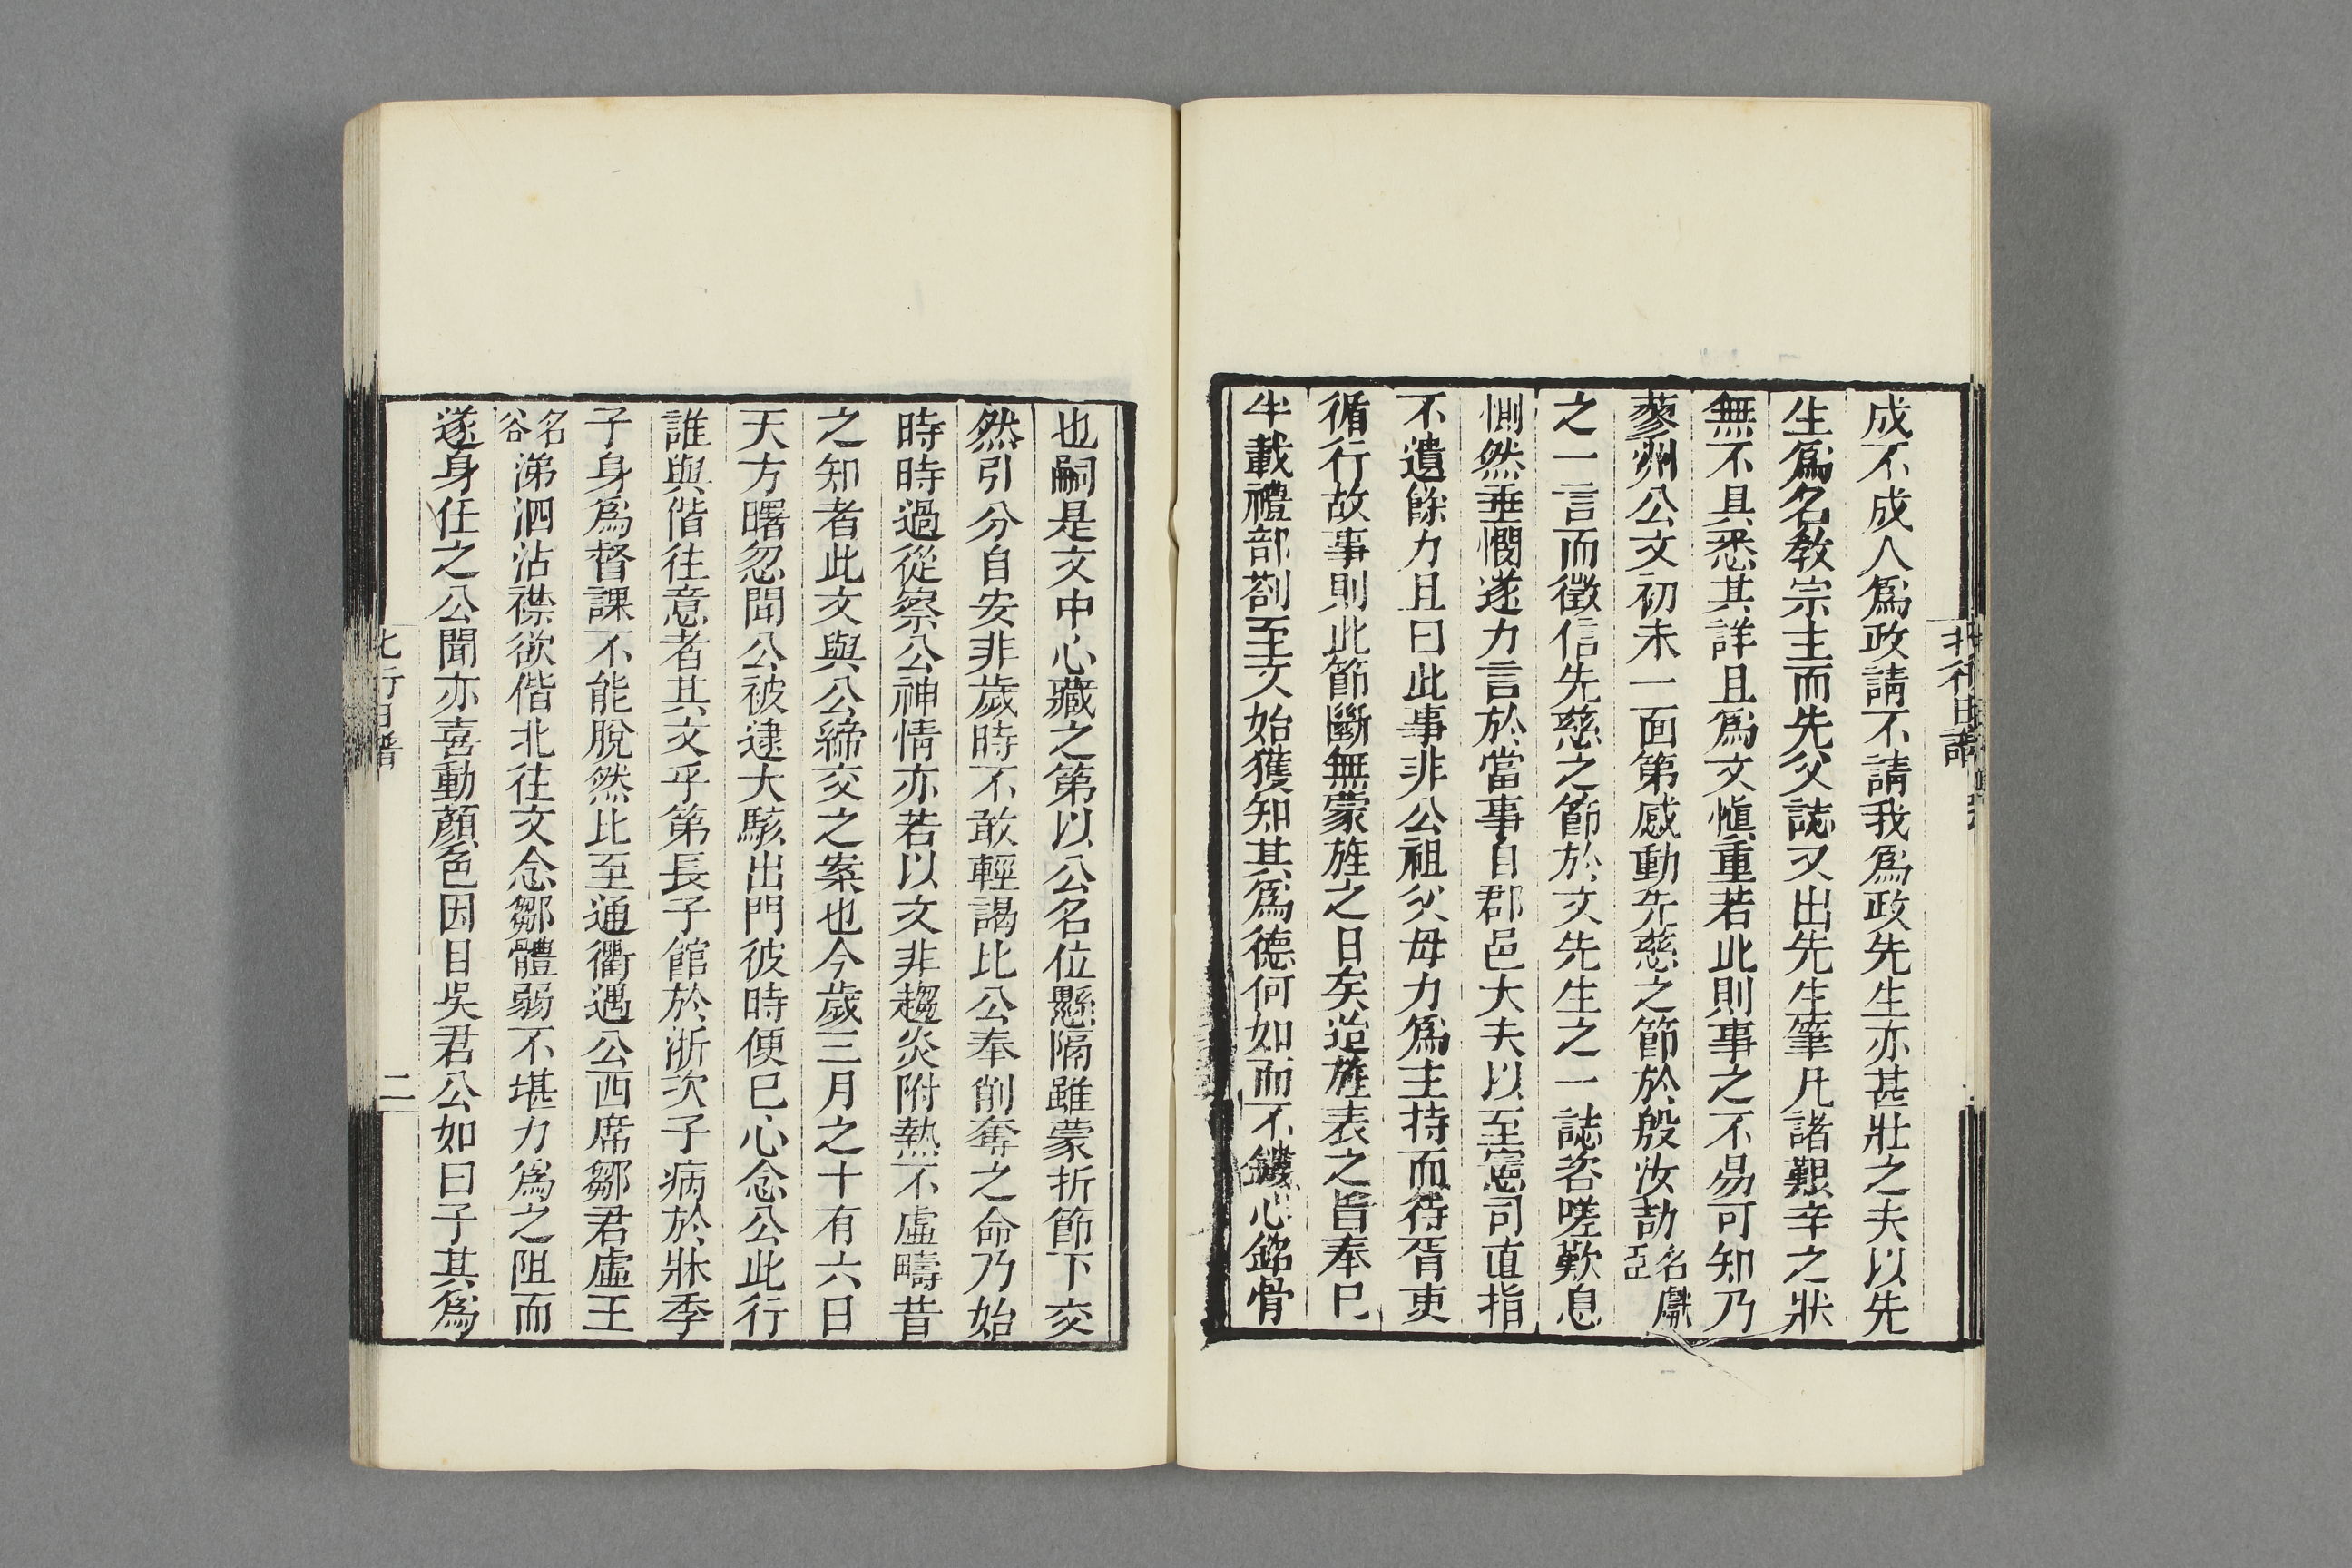 北行日譜
成不成人爲政請不請我爲政先生亦甚壯之夫以先
生爲名教宗主而先父誌又出先生筆凡諸艱辛之狀
無不具悉其詳且爲文愼重若此則事之不易可知乃
蓼州公文初未一面第感動先慈之節於殷汝劼名獻臣
之一言而徵信先慈之節於文先生之一誌咨嗟歎息
惻然垂憫遂力言於當事自郡邑大夫以至憲司直指
不遺餘力且曰此事非公祖父母力爲主持而待胥吏
循行故事則此節斷無蒙旌之日矣迨旌表之旨奉巳
半載禮部劄至文始獲知其爲德何如而不鏤心銘骨
也嗣是文中心藏之第以公名位懸隔雖蒙折節下交
然引分自安非歲時不敢輕謁比公奉削奪之命乃始
時時過從察公神情亦若以文非趨炎附熱不虛疇昔
之知者此文與公締交之案也今歲三月之十有六日
天方曙忽聞公被逮大駭出門彼時便已心念公此行
誰與偕往意者其文乎第長子館於浙次子病於牀季
子身爲督課不能脫然比至通衢遇公西席鄒君虛王
名谷涕泗沾襟欲偕北往文念鄒體弱不堪力爲之阻而
遂身任之公聞亦喜動顏色因目吳君公如曰子其爲
北行日譜
二